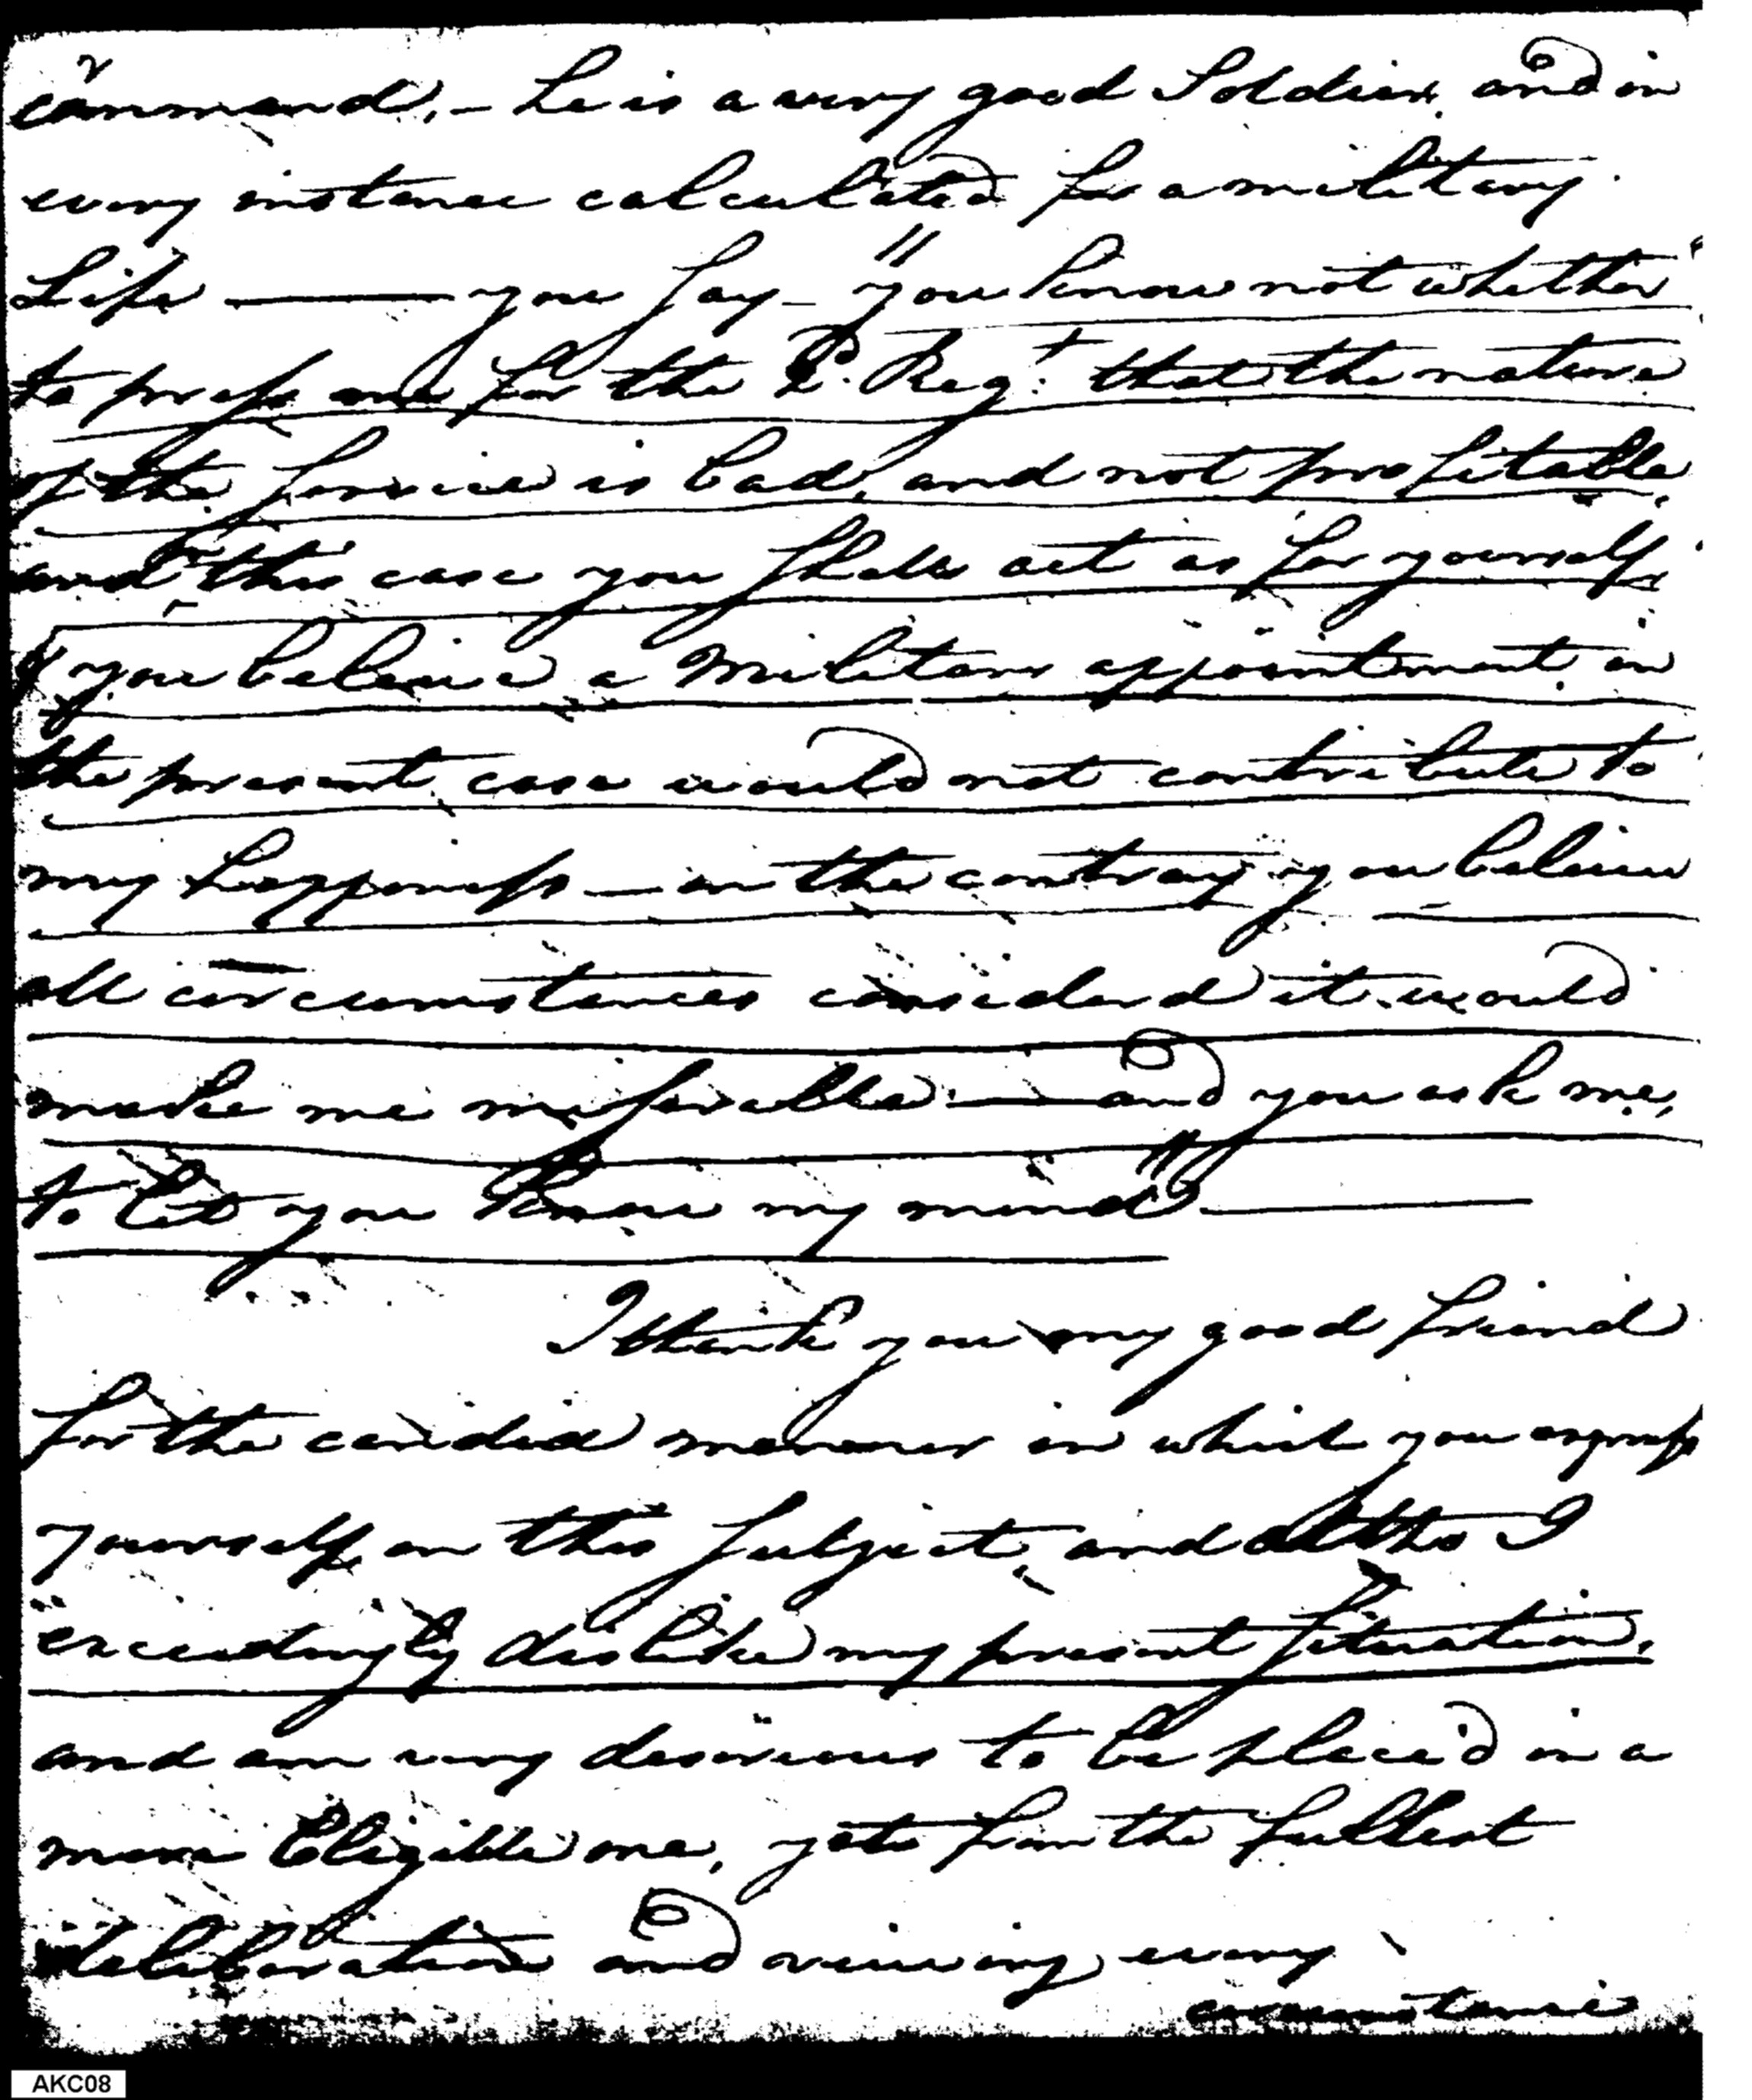 command, – he is a very good Soldier, and in
every instance calculated for a military
Life —— you say – "you know not whether
to press me for the P. Regt. that the nature
of the service is bad, and not profitable,
and in this case you shall act as for yourself,
you beleive a Military appointment in
the present case would not contribute to
my happiness – on the contrary you beleive
all circumstances considered it would
make me misserable — and you ask me,
to let you know my mind" ——
I thank you my good friend
for the candid manner in which you express
yourself on this subject, and altho I
exceedingly dislike my present situation,
and am very desireous to be place'd in a
more Eligible one, yet from the fullest
deliberation and viewing every
circumstance
AKC08